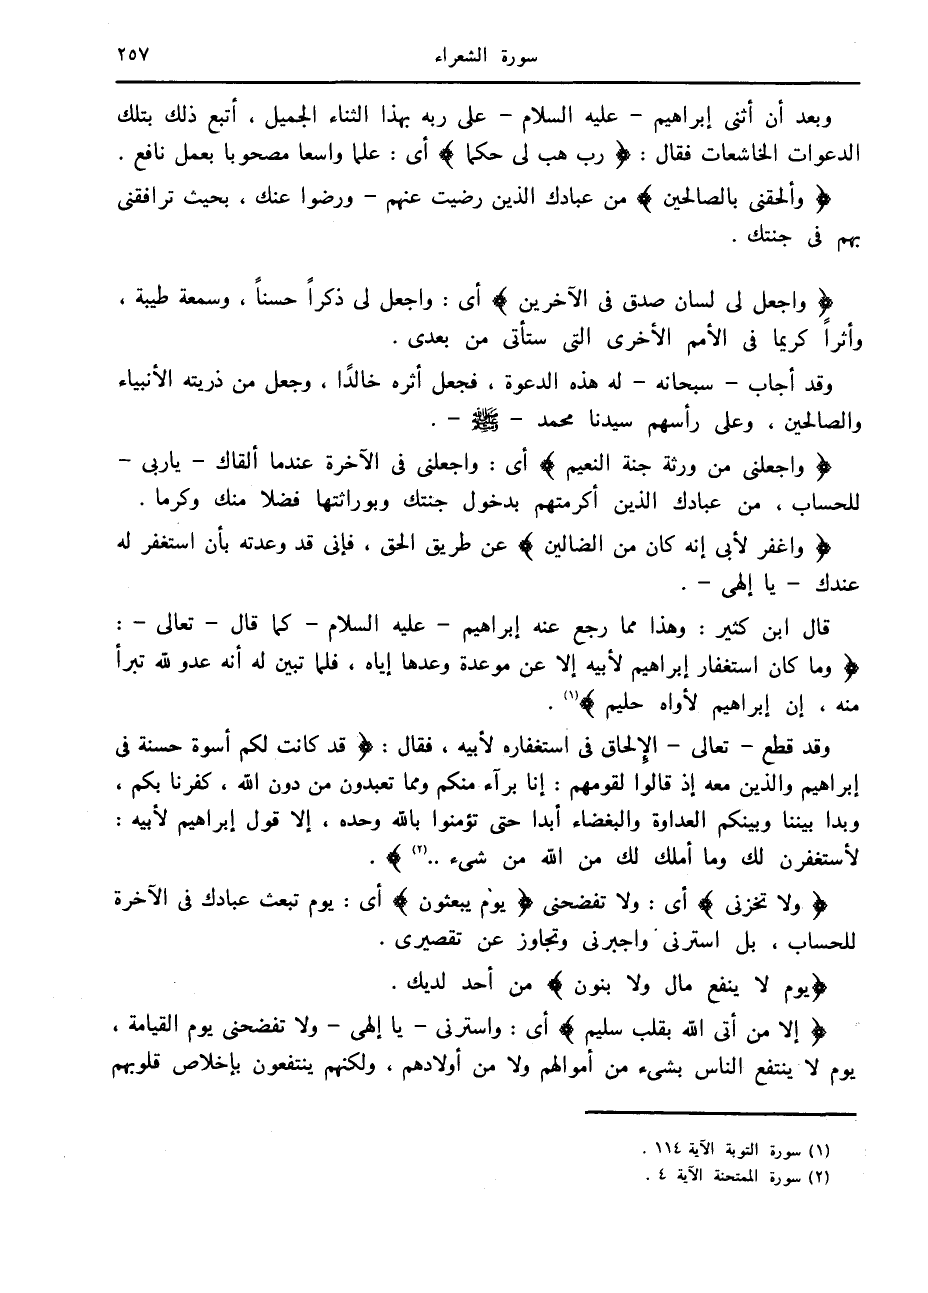 سورة الشعراء ٢٥٧
وبعد أن أثنى إبراهيم – عليه السلام – على ربه بهذا الثناء الجميل ، أتبع ذلك بتلك
الدعوات الخاشعات فقال : ﴿ رب هب لى حكما ﴾ أى : علما واسعا مصحوبا بعمل نافع .
﴿ وألحقنى بالصالحين ﴾ من عبادك الذين رضيت عنهم – ورضوا عنك ، بحيث ترافقنى
بهم فى جنتك .
﴿ واجعل لى لسان صدق فى الآخرين ﴾ أى : واجعل لى ذكراً حسناً ، وسمعة طيبة ،
وأثراً كريما فى الأمم الأخرى التى ستأتى من بعدى .
وقد أجاب – سبحانه – له هذه الدعوة ، فجعل أثره خالدًا ، وجعل من ذريته الأنبياء
والصالحين ، وعلى رأسهم سيدنا محمد – ﷺ – .
﴿ واجعلنى من ورثة جنة النعيم ﴾ أى : واجعلنى فى الآخرة عندما ألقاك – ياربى –
للحساب ، من عبادك الذين أكرمتهم بدخول جنتك وبوراثتها فضلا منك وكرما .
﴿ واغفر لأبى إنه كان من الضالين ﴾ عن طريق الحق ، فإنى قد وعدته بأن استغفر له
عندك – يا إلهى – .
قال ابن كثير : وهذا مما رجع عنه إبراهيم – عليه السلام – كما قال – تعالى – :
﴿ وما كان استغفار إبراهيم لأبيه إلا عن موعدة وعدها إياه ، فلما تبين له أنه عدو لله تبرأ
منه ، إن إبراهيم لأواه حليم ﴾(١) .
وقد قطع – تعالى – الإلحاق فى استغفاره لأبيه ، فقال : ﴿ قد كانت لكم أسوة حسنة فى
إبراهيم والذين معه إذ قالوا لقومهم : إنا برآء منكم ومما تعبدون من دون الله ، كفرنا بكم ،
وبدا بيننا وبينكم العداوة والبغضاء أبدا حتى تؤمنوا بالله وحده ، إلا قول إبراهيم لأبيه :
لأستغفرن لك وما أملك لك من الله من شىء ..(٢) ﴾ .
﴿ ولا تخزنى ﴾ أى : ولا تفضحنى ﴿ يوم يبعثون ﴾ أى : يوم تبعث عبادك فى الآخرة
للحساب ، بل استرنى واجبرنى وتجاوز عن تقصيرى .
﴿يوم لا ينفع مال ولا بنون ﴾ من أحد لديك .
﴿ إلا من أتى الله بقلب سليم ﴾ أى : واسترنى – يا إلهى – ولا تفضحنى يوم القيامة ،
يوم لا ينتفع الناس بشىء من أموالهم ولا من أولادهم ، ولكنهم ينتفعون بإخلاص قلوبهم
(١) سورة التوبة الآية ١١٤ .
(٢) سورة الممتحنة الآية ٤ .